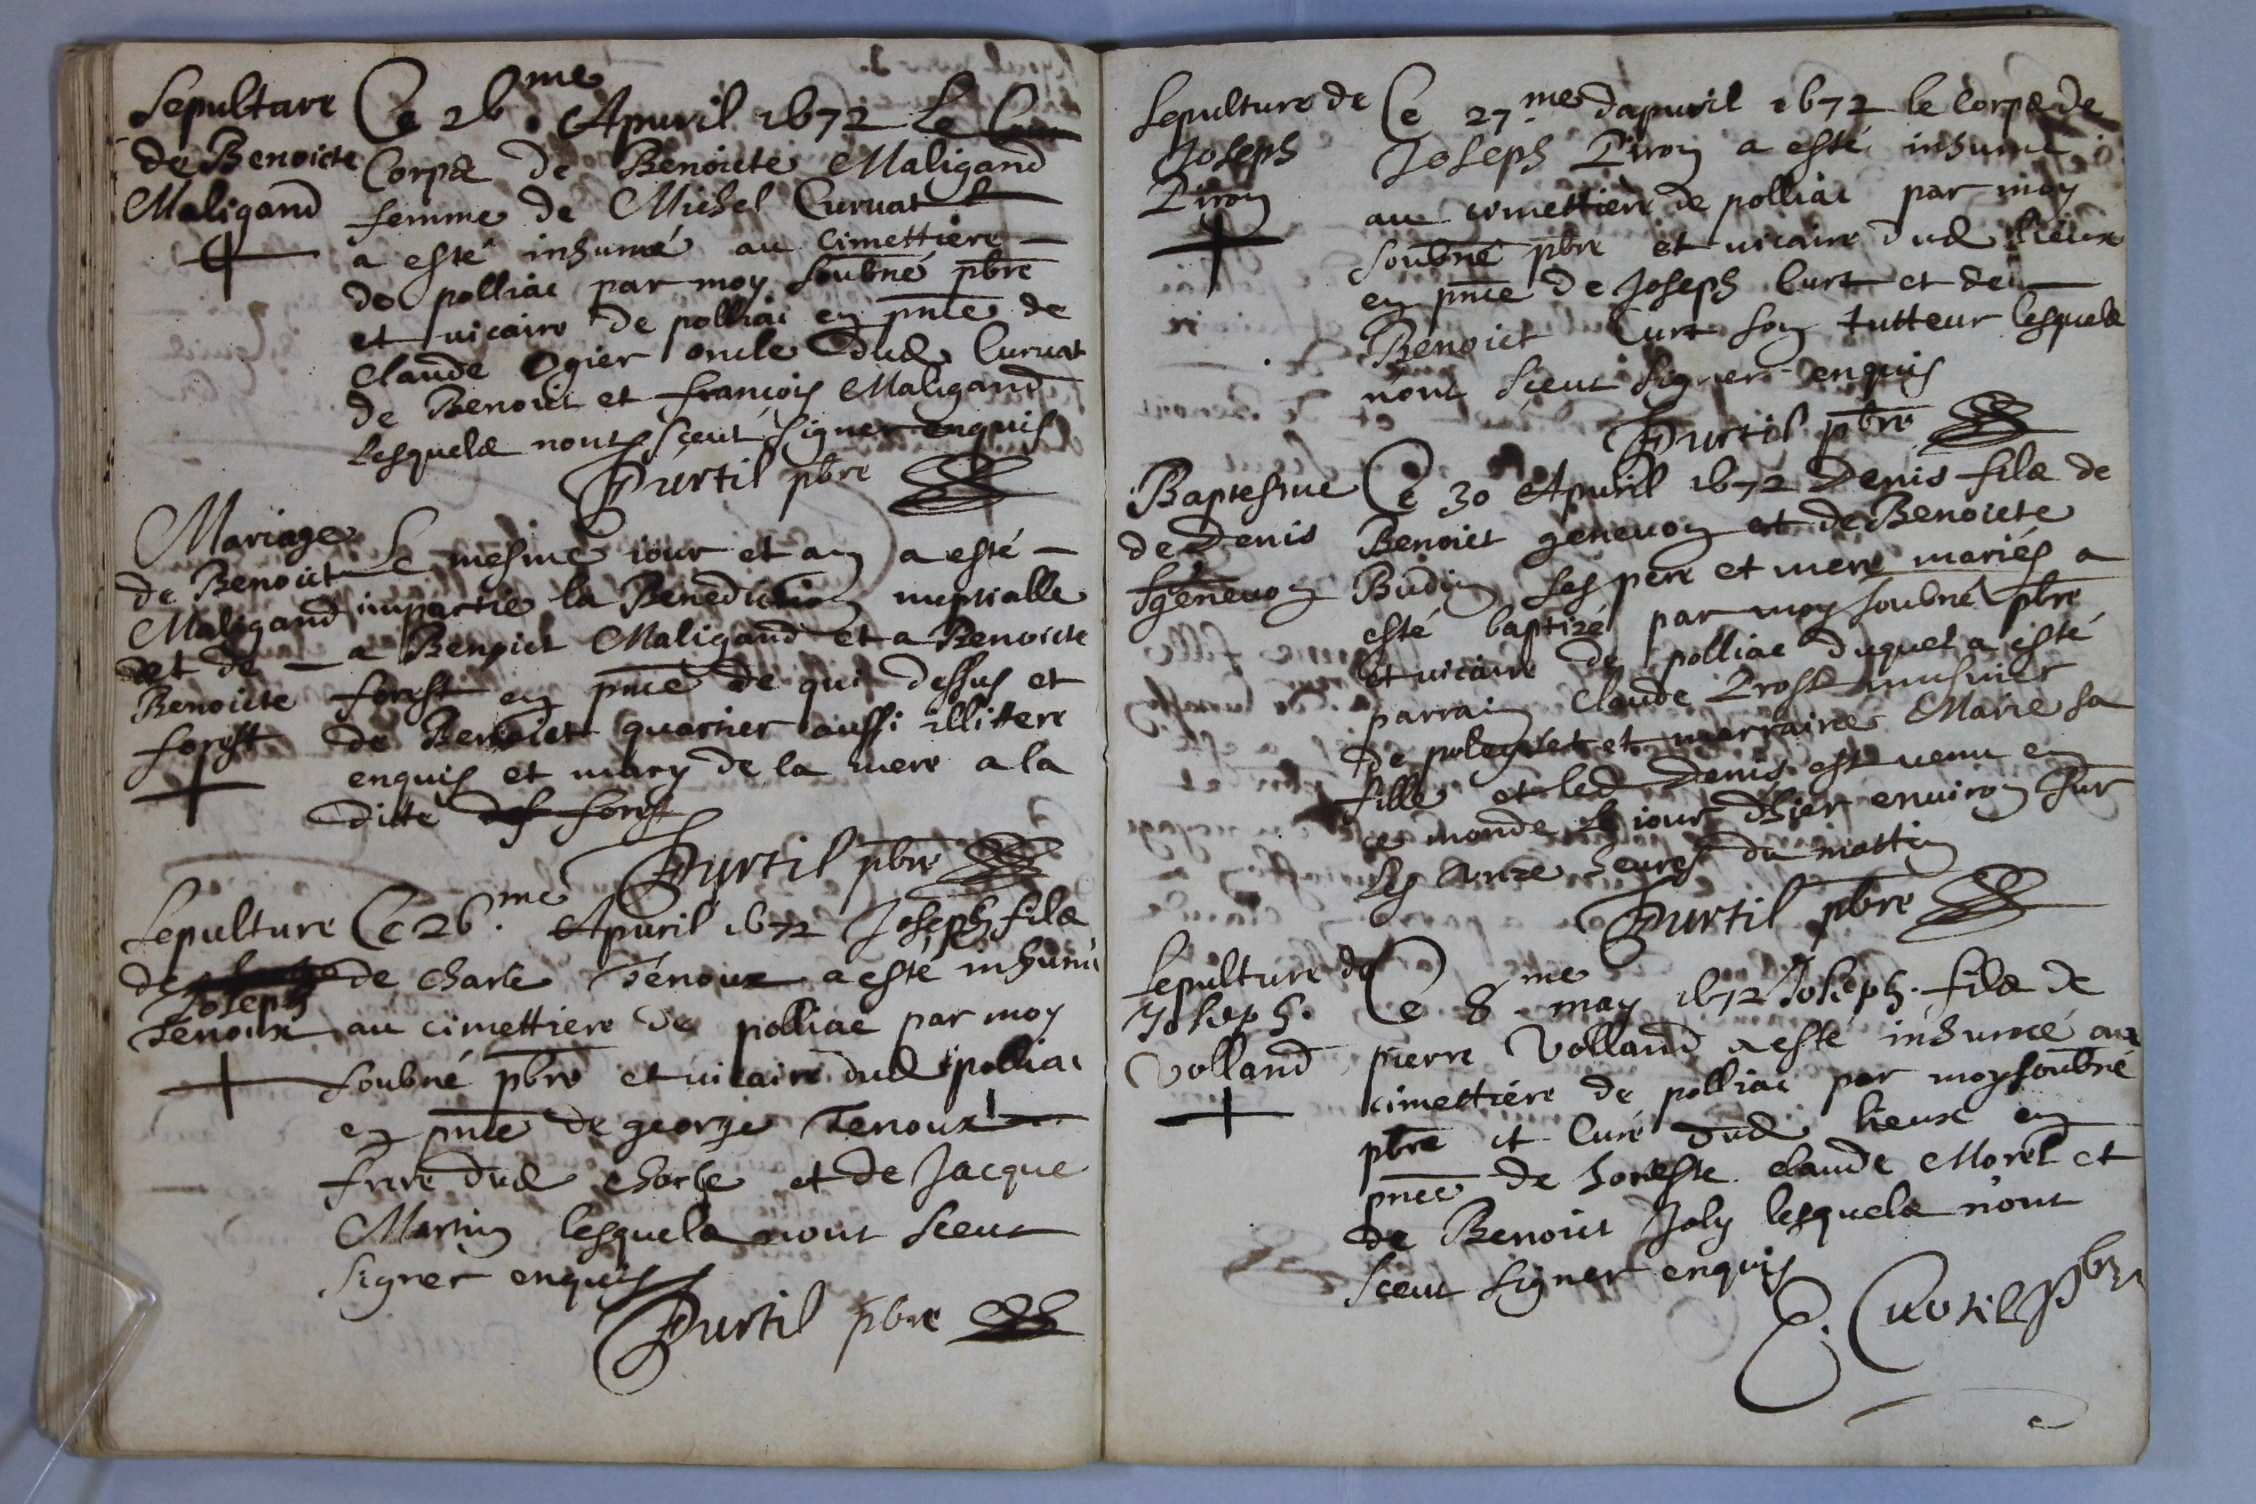 Sepulture
de Benoicte
Maligand
Ce 26.me Apuril 1672 Le
Corps de Benoicte Maligand
femme de Michel Curuat
a esté inhumé au Cimettiere
de polliac par moy soubné pbre
et uicaire de polliac en pnce de
Claude Ogier oncle dud Curuat
de Benoict et françois Maligand
Lesquels nont sçeut signer enquis
Purtil pbre
Mariage
de Benoict
Maligand
et de
Benoicte
forest
Le mesme iour et an a esté
impartie la Benediction nuptialle
a Benoict Maligand et a Benoicte
forest en pnce de qui dessus et
de Benoict quartier aussi illittere
enquis et mary de la mere a la
ditte forest
Purtil pbre
Sepulture
de
Joseph
Tenoux
Ce 26.me Apuril 1672 Joseph fils
de charle Tenoux a esté inhumé
au cimettiere de polliac par moy
soubné pbre et uicaire dud polliac
en pnce de george Tenoux
frere dud charle et de Jacque
Martin lesquels nont sceut
signer enquis
Purtil pbre
Sepulture de
Joseph
Piron
Ce 27.me dapuril 1672 le Corps de
Joseph Piron a esté inhumé
au cimettiere de polliac par moy
soubné pbre et uicaire dud lieux
en pnce de Joseph Curt et de
Benoict Curt son tutteur lesquels
nont sçeut signer enquis
Purtil pbre
Baptesme
de Denis
genevon
Ce 30 Apuril 1672 Denis fils de
Benoict genevon et de Benoicte
Budin ses pere et mere mariés a
esté baptizé par moy soubné pbre
et uicaire de polliac duquel a esté
parrain Claude Prost musnier
de et marraine Marie sa
fille et led Denis est venu en
ce monde le iour dhier enuiron sur
les onze heures du mattin
Purtil pbre
Sepulture de
Joseph.
Volland
Ce 8.me may 1672 Joseph. fils de
pierre Volland a esté inhumé au
cimettiere de polliac par moy soubné
pbre et Curé dud lieux en
pnce de honeste claude Morel et
de Benoict Joly lesquels n'ont
sceut signer enquis